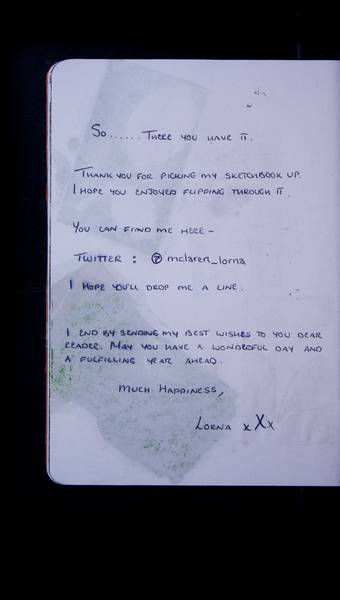 So...... There you have it.
Thank you for picking my sketchbook up.
I hope you enjoyed flipping through it.
You can find me here -
Twitter : @ mclaren_lorna
I hope you'll drop me a line.
I end by sending my best wishes to you dear
reader. May you have a wonderful day and
a fulfilling year ahead.
Much Happiness,
Lorna x X x